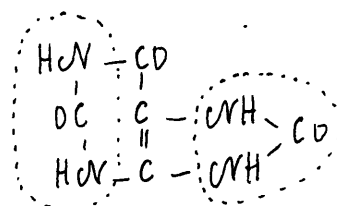 HN – CO
OC C – NH
CO
HN – C – NH